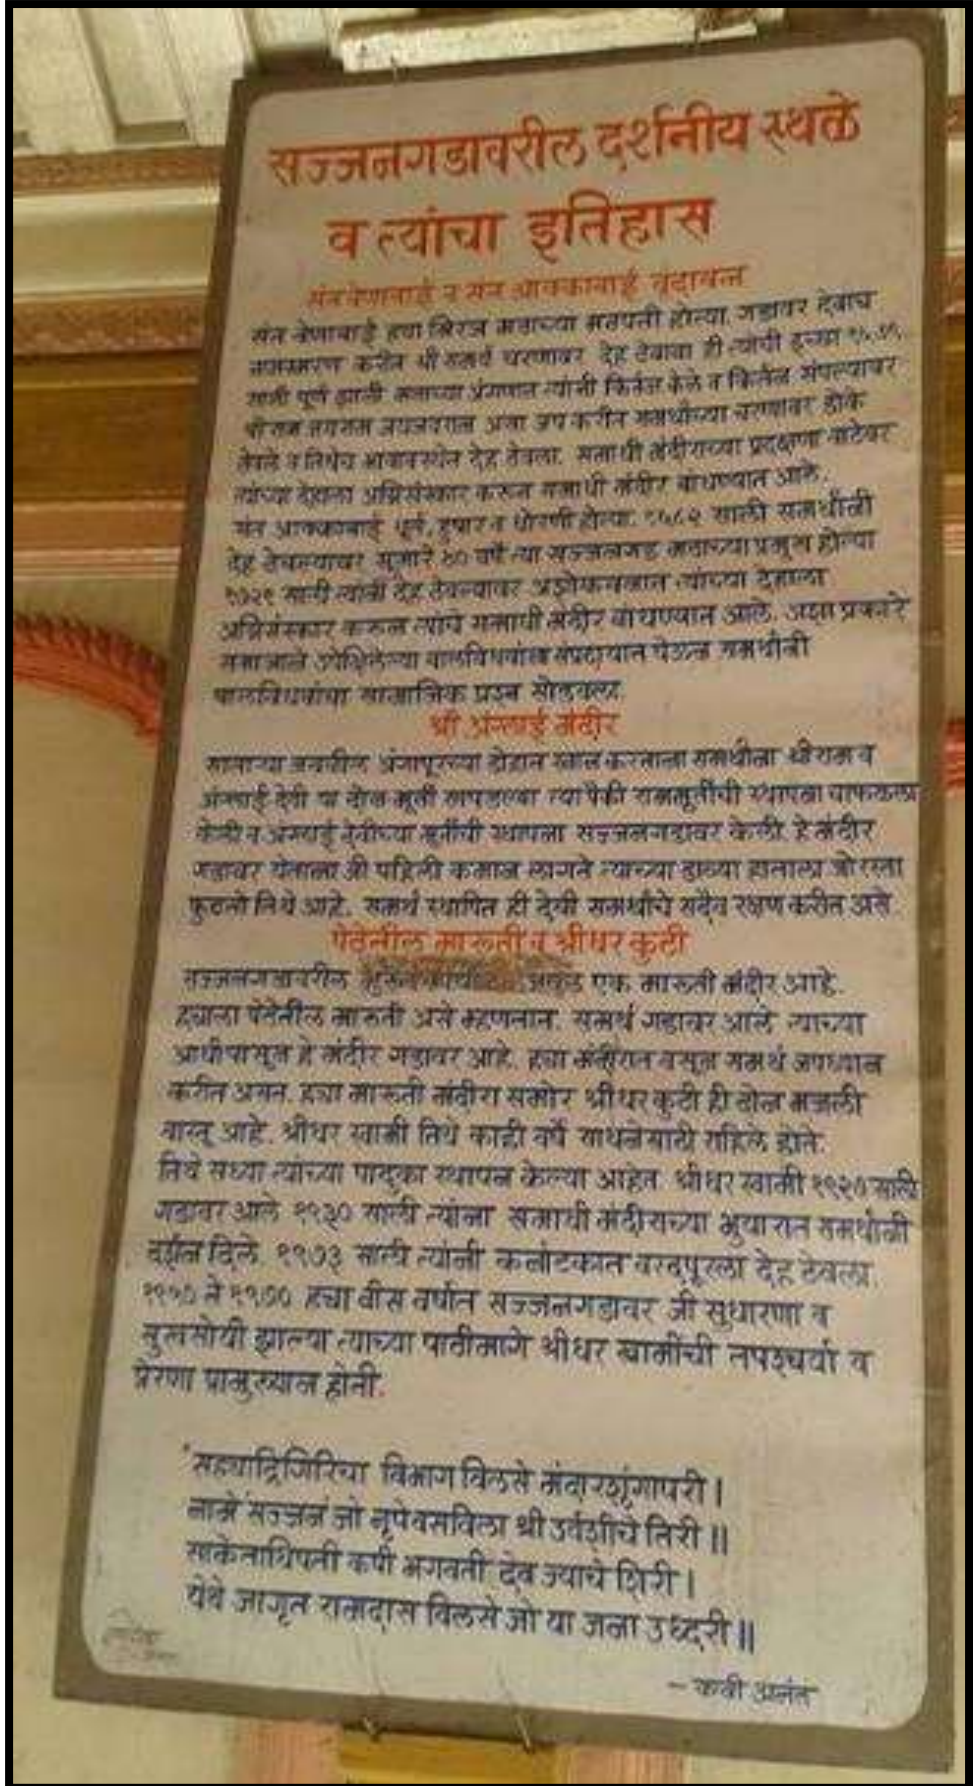 सज्जनगडावरील दर्शनीय स्थळे
व त्यांचा इतिहास
संत वेणाबाई व संत आक्काबाई वृंदावन
संत वेणाबाई ह्या मिरज मठाच्या मठपती होत्या. गडावर देवाचे
नामस्मरण करीत श्री समर्थ चरणावर देह ठेवावा ही त्यांची इच्छा
साली पूर्ण झाली मठाच्या प्रांगणात त्यांनी किर्तन केले व किर्तन संपल्यावर
श्रीराम जयराम जयजयराम असा जप करीत समर्थांच्या चरणावर डोके
ठेवले व तिथेच भावावस्थेत देह ठेवला. समाधी मंदीराच्या प्रदक्षणा वाटेवर
त्यांच्या देहाला अग्निसंस्कार करून समाधी मंदीर बांधण्यात आले.
संत आक्काबाई धूर्त, हुषार व धोरणी होत्या. १६८२ साली समर्थांनी
देह ठेवल्यावर सुमारे ४० वर्षे त्या सज्जनगड मठाच्या प्रमुख होत्या
१७२१ साली त्यांनी देह ठेवल्यावर अशोकवनात त्यांच्या देहाला
अग्निसंस्कार करून त्यांचे समाधी मंदीर बांधण्यात आले. अशा प्रकारे
समाजाने उपेक्षिलेल्या बालविधवांना संप्रदायात घेऊन समर्थांनी
बालविधवांचा सामाजिक प्रश्न सोडवला.
श्री अंगलाई मंदीर
साताऱ्या जवळील अंगापूरच्या डोहात स्नान करताना समर्थांना श्रीराम व
अंगलाई देवी या दोन मूर्ती सापडल्या त्यापैकी राममूर्तीची स्थापना चाफळला
केली व अंगलाई देवीच्या मूर्तीची स्थापना सज्जनगडावर केली. हे मंदीर
गडावर येताना जी पहिली कमान लागते त्याच्या डाव्या हाताला जो रस्ता
फुटतो तिथे आहे. समर्थ स्थापित ही देवी समर्थांचे सदैव रक्षण करीत असे.
पेठेतील मारुती व श्रीधर कुटी
सज्जनगडावरील जवळ एक मारुती मंदीर आहे.
ह्याला पेठेतील मारुती असे म्हणतात. समर्थ गडावर आले त्याच्या
आधीपासून हे मंदीर गडावर आहे. ह्या मंदीरात बसून समर्थ जपध्यान
करीत असत. ह्या मारुती मंदीरा समोर श्रीधर कुटी ही दोन मजली
वास्तू आहे. श्रीधर स्वामी तिथे काही वर्षे साधनेसाठी राहिले होते.
तिथे सध्या त्यांच्या पादुका स्थापन केल्या आहेत श्रीधर स्वामी साली
गडावर आले १९३० साली त्यांना समाधी मंदीराच्या भुयारात समर्थांनी
दर्शन दिले. १९७३ साली त्यांनी कर्नाटकात वरदपूरला देह ठेवला.
१९५० ते १९७० ह्या वीस वर्षात सज्जनगडावर जी सुधारणा व
सुखसोयी झाल्या त्याच्या पाठीमागे श्रीधर स्वामींची तपश्चर्या व
प्रेरणा प्रामुख्यान होती.
'सह्याद्रिगिरिचा विभाग विलसे मंदारशृंगापरी।
नामे सज्जन जो नृपेवसविला श्री उर्वशीचे तिरी॥
साकेताधिपती कपी भगवती देव ज्याचे शिरी।
येथे जागृत रामदास विलसे जो या जना उध्दरी॥
- कवी अनंत